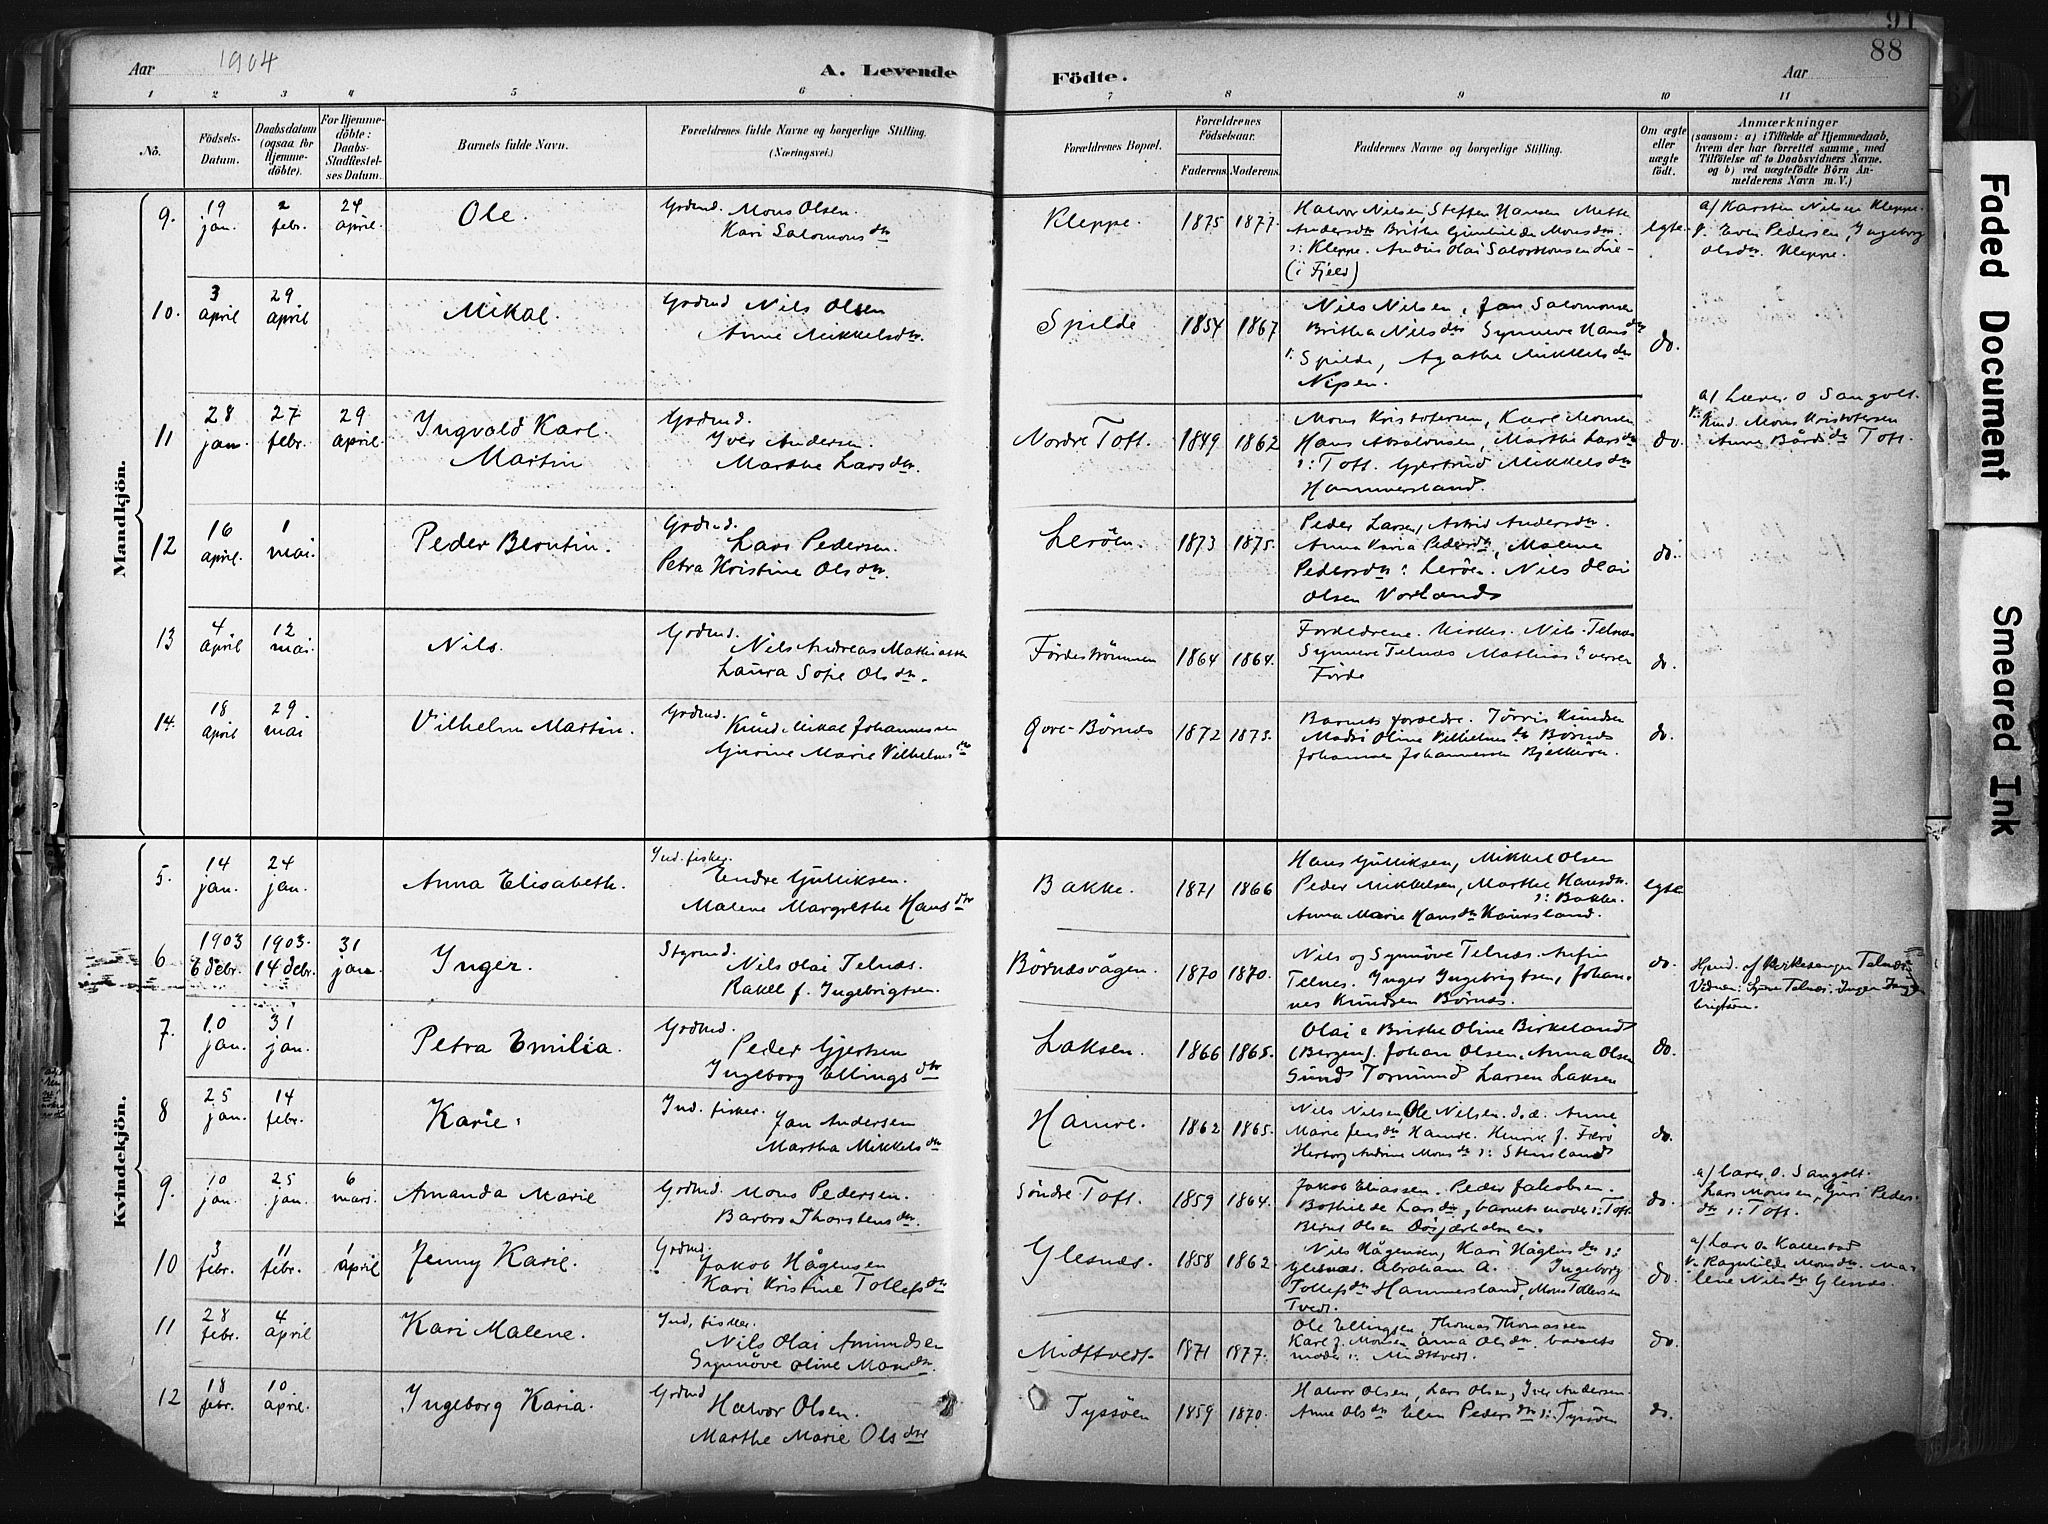 Aar 1904
A. Levende Födte.
Aar
91
88
1 2 3 4 5 6 7 8 9 10 11
No.
Födsels-Datum.
Daabsdatum (ogsaa for Hjemmedöbte).
For Hjemmedöbte: Daabs-Stadfæstelses Datum.
Barnets fulde Navn.
Forældrenes fulde Navne og borgerlige Stilling. (Næringsvei.)
Forældrenes Bopæl.
Forældrenes Födselsaar.
Faderens. Moderens.
Faddernes Navne og borgerlige Stilling.
Om ægte eller uægte födt.
Anmærkninger
(saasom: a) i Tilfælde af Hjemmedaab,
hvem der har forrettet samme, med
Tilföielse af to Daabsvidners Navne,
og b) ved uægtefödte Börn An-
melderens Navn m. V.)
Mandkjön.
9. 19 jan. 2 febr. 24 april. Ole. Grdmd. Mons Olsen. Kari Salomonsdtr Kleppe. 1875 1877.
Halvor Nilsen, Steffen Hansen Mette
Andersdtr Brithe Gunhilde Monsdtr.
: Kleppe. Andus Olai Salomonsen Lie
(i Fjeld)
egte.
a/ Karsten Nilsen Kleppe.
Even Pedersen, Ingeborg
Olsdtr. Kleppe.
10. 3 april 29 april Mikal. Grdmd Nils Olsen Anne Mikkelsdtr. Spilde 1854 1867
Nils Nilsen, Jan Salomonsen
Britha Nilsdtr Synneve Hansdtr
: Spilde, Agathe Mikkelsdtr
Nipen.
do.
11 28 jan. 27 febr. 29 april. Ingvald Karl Martin Grdmd. Iver Andersen. Marthe Larsdtr. Nordre Toft. 1849 1862
Mons Kristofersen, Karl Monsen
Hans Absalonsen, Marthe Larsdtr
: Toft. Gjertrud Mikkelsdtr
Hammersland.
do.
a/ Lærer O Sangolt.
V: Knd. Mons Kristofersen
: Anne Bårdsdtr Toft.
12 16 april. 1 mai. Peder Berntin. Grdmd. Lars Pedersen. Petra Kristine Olsdtr. Leröen. 1873 1875.
Peder Larsen, Astrid Andersdtr.
Anna Karia Pedersdtr, Malene
Pedersdtr : Leröen. Nils Olai
Olsen Vorland
do.
13 4 april 12 mai. Nils. Grdmd. Nils Andreas Mathiassen Laura Sofie Olsdtr. Fördeströmmen 1864 1864.
Forældrene. Kirkes. Nils Telnæs
Synneve Telnæs Mathias Iversen
Förde
do.
14. 18 april 29. mai Vilhelm Martin. Grdmd. Knud Mikal Johannessen Gurine Marie Vilhelmsdtr Övre-Börnes 1872 1873.
Barnets forældre. Törris Knudsen
Madsi Oline Vilhelmsdtr Bornes
Johannes Johannessen Bjelkeröen.
do.
Kvindekjön.
5. 14 jan. 24 jan. Anna Elisabeth. Ind. fisker. Endre Gulliksen. Malene Margrethe Hansdtr Bakke. 1871 1866
Hans Gulliksen, Mikkel Olsen
Peder Mikkelsen, Marthe Hansdtr.
: Bakke.
Anna Marie Hansdtr Kausland.
egte
6 1903 6 debr. 1903. 14 debr. 31 jan. Inger. Styrmd. Nils Olai Telnæs. Rakel f. Ingebrigtsen. Börnesvågen. 1870 1870.
Nils og Synnöve Telnæs. Anfin
Telnes. Inger Ingebrigtsen, Johan-
nes Knudsen Bornes.
do.
Hjmd. af Kirkesanger Telnæs.
Vidner: Syne Telnæs. Inger Inge-
brigtsen.
7. 10 jan. 31 jan. Petra Emilia. Grdmd. Peder Gjertsen Ingeborg Ellingsdtr Laksen. 1866 1865.
Olai & Brithe Oline Birkeland
(Bergen). Johan Olsen. Anna Olsen
Sund Tormund Larsen Laksen
do.
8 25 jan. 14 febr. Karie. Ind. fisker. Jan Andersen Martha Mikkelsdtr Hamre. 1862 1865.
Nils Nilsen, Ole Nilsen. d.æ. Anne
Marie Jensdtr Hamre. Henrik J. Færö
Herborg Andrine Monsdtr : Stensland
do.
9. 10 jan. 25 jan. 6 mars. Amanda Marie Grdmd. Mons Pedersen. Barbro Thorstensdtr. Söndre Toft. 1859 1864.
Jakob Eliassen. Peder Jakobsen.
Bothilde Larsdtr, barnets moder : Toft.
Bernt Olsen
do.
a/ Lærer O. Sangolt.
Lars Monsen, Guri Peders-
dtr : Toft.
10 3 febr. 11 febr. 1 april Jenny Karie. Grdmd. Jakob Hågensen Kari Kristine Tollefsdtr Glesnæs. 1858 1862.
Nils Hågensen, Kari Hågensdtr :
Glesnæs. Abraham A. Ingeborg
Tollefsdtr Hammersland, Mons Tollefsen
Tvedt.
do.
a/ Lærer O. Kallestad
V. Ragnhilde Monsdtr. Ma-
lene Nilsdtr Glesnæs.
11 28 febr. 4 april Kari Malene. Ind. fisker. Nils Olai Amundsen Synnöve Oline Monsdtr. Midttvedt. 1871 1877.
Ole Ellingsen, Thomas Thomassen
Karl J. Monsen Anna Olsdtr. barnets
moder : Midttvedt.
do.
12 18 febr. 10 april. Ingeborg Karia. Grdmd Halvor Olsen. Marthe Marie Olsdtr Tyssöen 1859 1870.
Halvor Olsen, Lars Olsen, Iver Andersen.
Anne Olsdtr Elen Pedersdtr : Tyssöen
do.
Faded Document
Smeared Ink